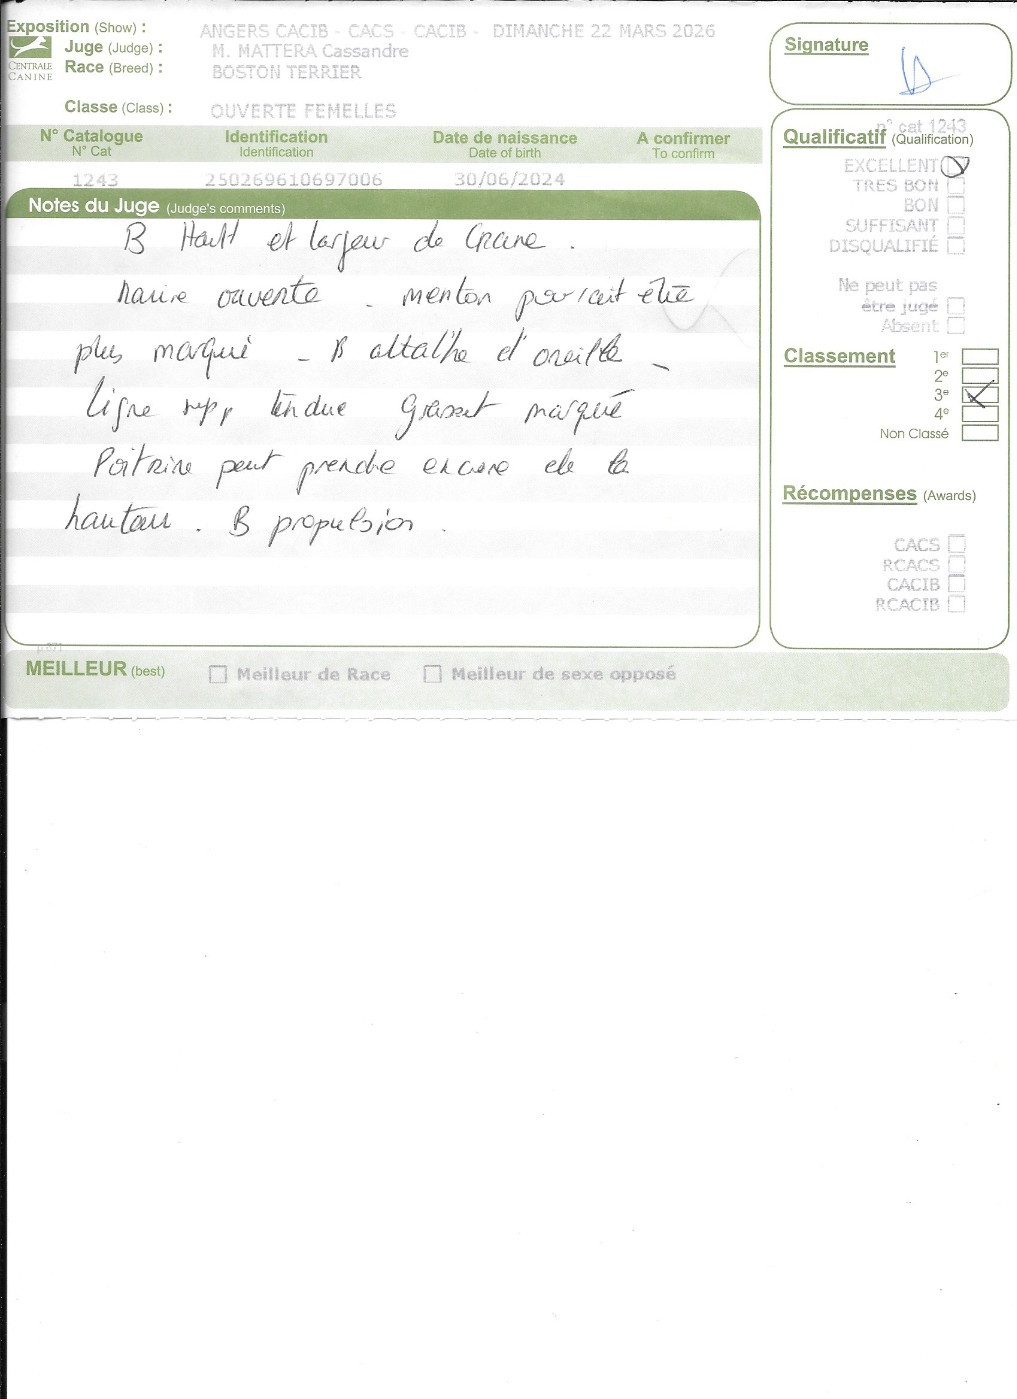 Exposition (Show) : ANGERS CACIB - CACS - CACIB - DIMANCHE 22 MARS 2026
Juge (Judge) : M. MATTERA Cassandre
Race (Breed) : BOSTON TERRIER
CENTRALE CANINE
Classe (Class) : OUVERTE FEMELLES
Signature
N° Catalogue Identification Date de naissance A confirmer
N° Cat Identification Date of birth To confirm
1243 250269610697006 30/06/2024
Notes du Juge (Judge's comments)
B Haut et largeur de Crane .
narine ouverte - menton pourrait être
plus marqué - B attache d'oreille -
ligne sup tendue Grasset marqué
Poitrine peut prendre encore de la
hauteur . B propulsion .
n° cat 1243
Qualificatif (Qualification)
EXCELLENT
TRES BON
BON
SUFFISANT
DISQUALIFIÉ
Ne peut pas
être jugé
Absent
Classement 1er
2e
3e
4e
Non Classé
Récompenses (Awards)
CACS
RCACS
CACIB
RCACIB
MEILLEUR (best) Meilleur de Race Meilleur de sexe opposé